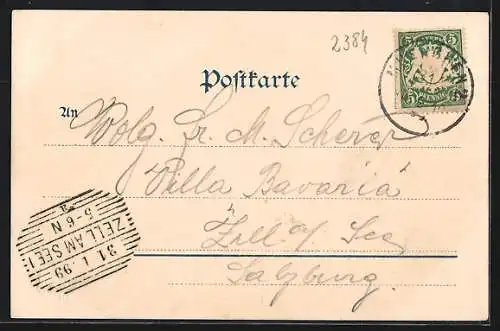 2384
Postkarte
An
Wolg. Fr. M. Scherer
Villa Bavaria
Zell a/ See
Salzburg.
5 5
PFENNIG
MÜNCHEN
ZELL AM SEE
31 1 99
5-6 N